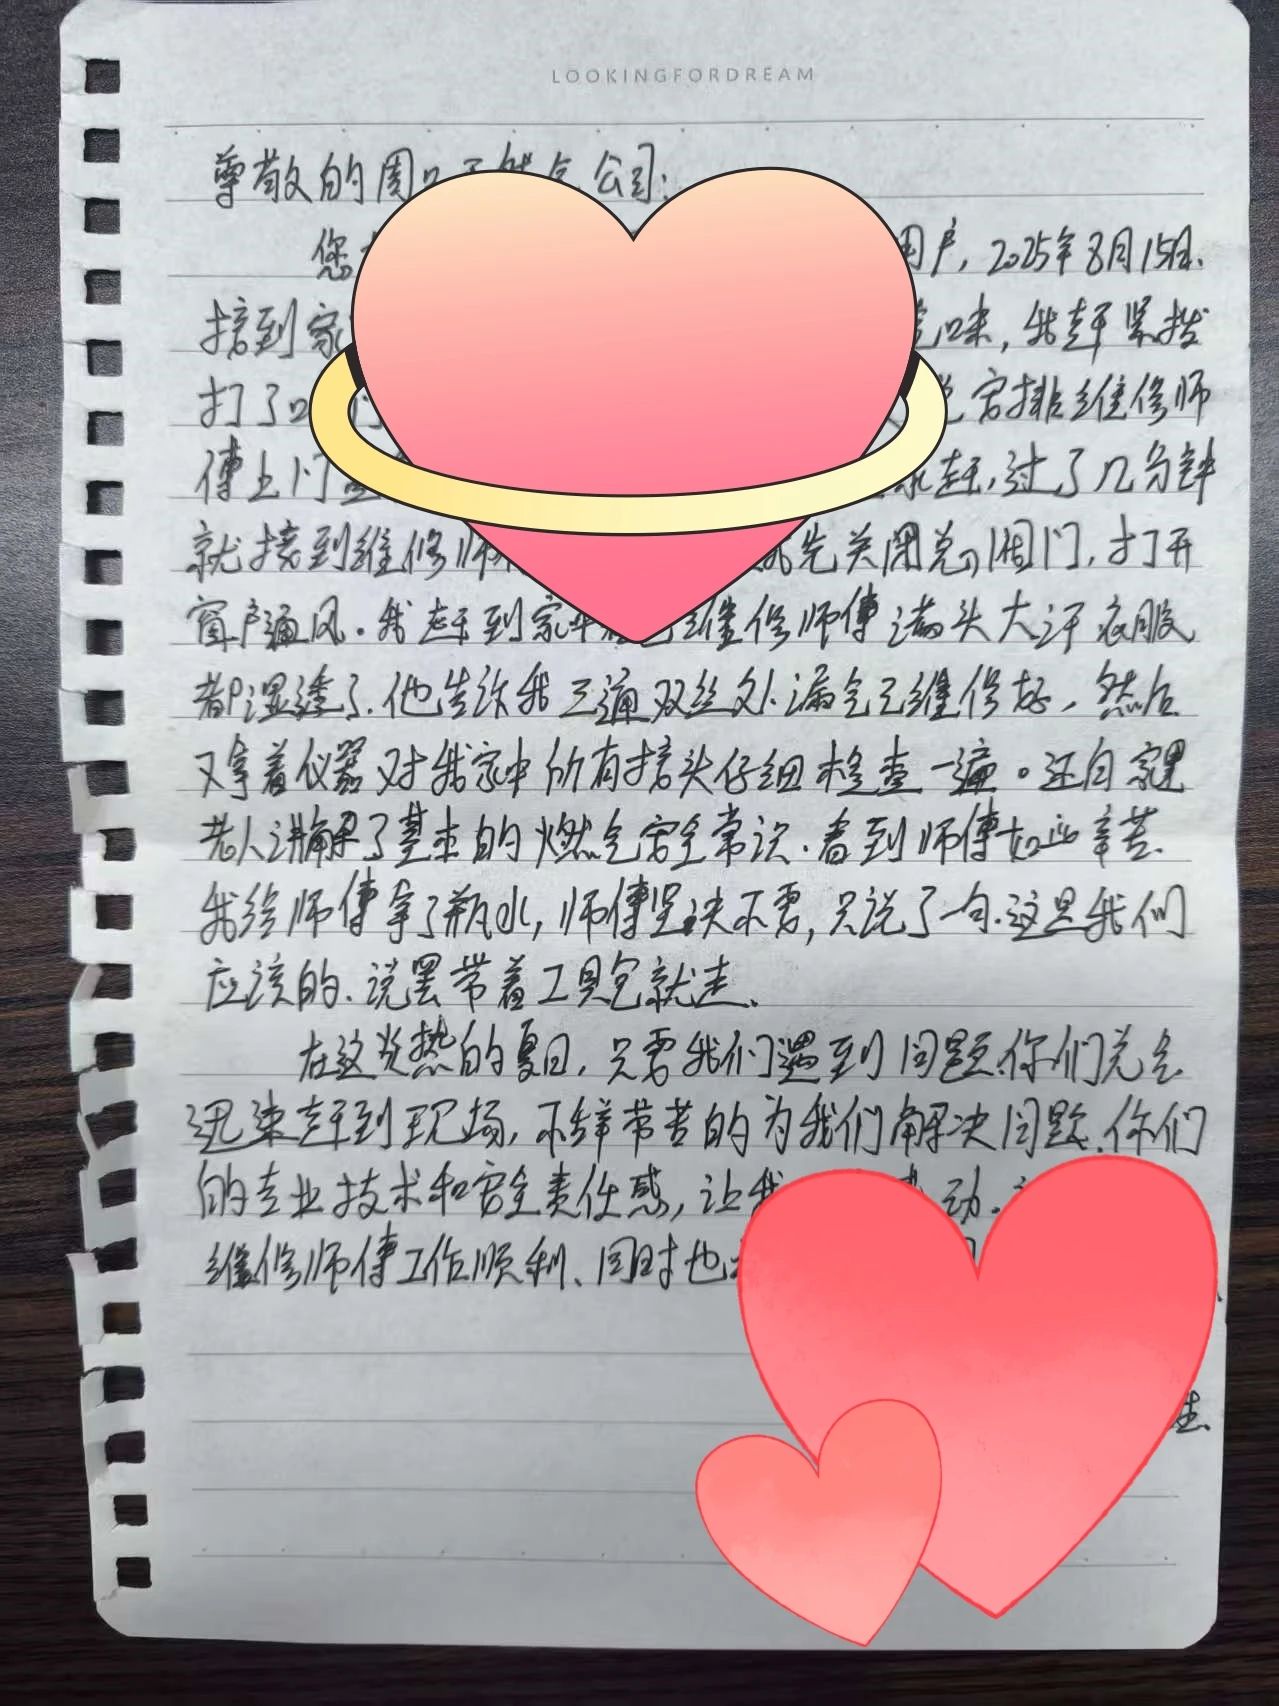 LOOKINGFORDREAM
尊敬的周口天然气公司:
您 用户,2025年8月15日.
接到家 味,我赶紧拨
打了 安排维修师
傅上门 赶,过了几分钟
就接到维修师 我先关闭总阀门,打开
窗户通风.我赶到家 维修师傅满头大汗衣服
都湿透了.他告诉我三通双丝处漏气已维修好,然后
又拿着仪器对我家中所有接头仔细检查一遍。还自家里
老人讲解了基本的燃气安全常识.看到师傅如此辛苦.
我给师傅拿了瓶水,师傅坚决不要,只说了一句.这是我们
应该的.说罢带着工具包就走.
在这炎热的夏日,只要我们遇到问题.你们总会
迅速赶到现场,不辞劳苦的为我们解决问题.你们
的专业技术和安全责任感,让我 动.
维修师傅工作顺利、同时也
生